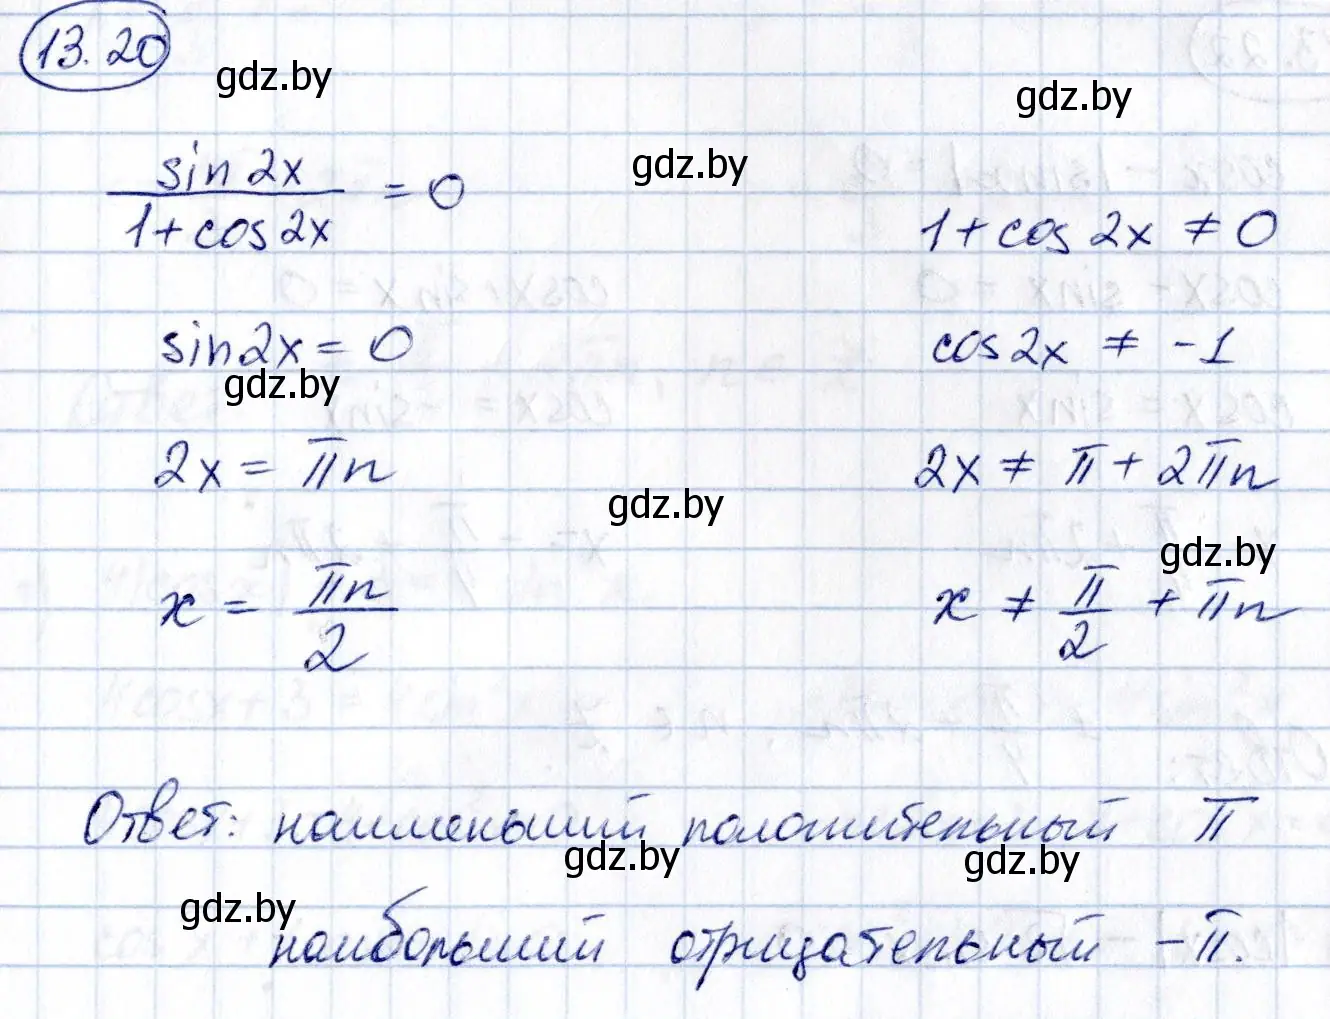 13.20
gdz.by
gdz.by
gdz.by
sin 2x / 1 + cos 2x = 0
1 + cos 2x ≠ 0
sin 2x = 0
cos 2x ≠ -1
gdz.by
2x = πn
2x ≠ π + 2πn
gdz.by
gdz.by
x = πn / 2
x ≠ π / 2 + πn
Ответ: наименьший положительный π
gdz.by
gdz.by
gdz.by
наибольший отрицательный -π.